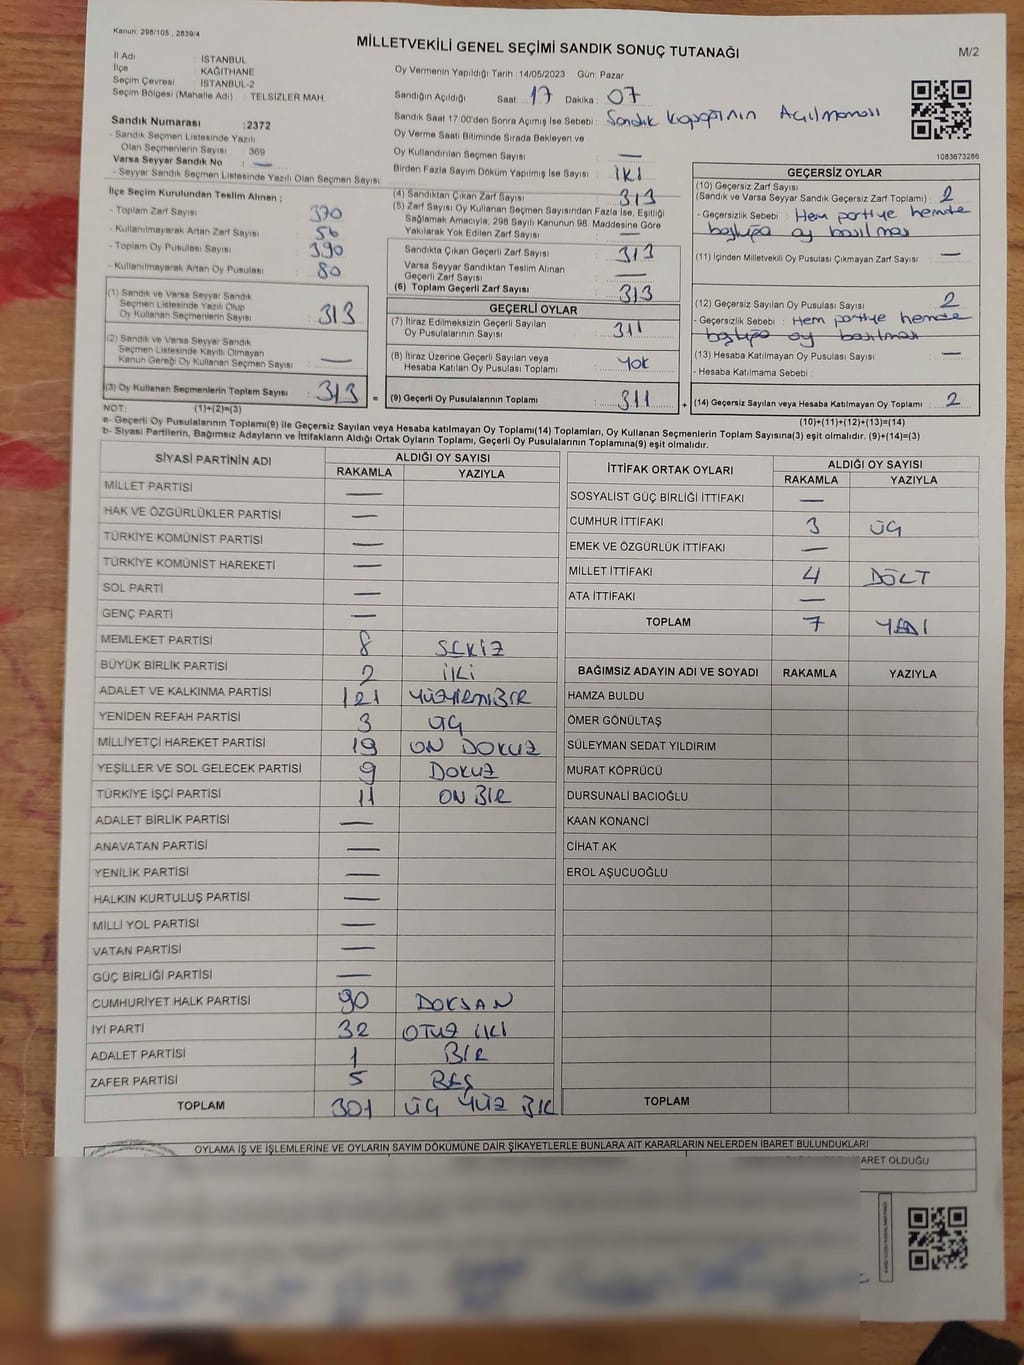 Kanun: 298/105 , 2839/4
MİLLETVEKİLİ GENEL SEÇİMİ SANDIK SONUÇ TUTANAĞI
M/2
İl Adı : İSTANBUL
İlçe : KAĞITHANE
Seçim Çevresi : İSTANBUL-2
Seçim Bölgesi (Mahalle Adı) : TELSİZLER MAH.
Oy Vermenin Yapıldığı Tarih : 14/05/2023 Gün: Pazar
Sandığın Açıldığı Saat: 17 Dakika : 07
Sandık Saat 17.00'den Sonra Açımış İse Sebebi : Sandık Kapağının Açılmaması
Oy Verme Saati Bitiminde Sırada Bekleyen ve
Oy Kullandırılan Seçmen Sayısı : —
Birden Fazla Sayım Döküm Yapılmış İse Sayısı : İKİ
1083673286
Sandık Numarası :2372
- Sandık Seçmen Listesinde Yazılı
Olan Seçmenlerin Sayısı : 369
Varsa Seyyar Sandık No : —
- Seyyar Sandık Seçmen Listesinde Yazılı Olan Seçmen Sayısı
İlçe Seçim Kurulundan Teslim Alınan ;
- Toplam Zarf Sayısı : 370
- Kullanılmayarak Artan Zarf Sayısı : 56
- Toplam Oy Pusulası Sayısı : 390
- Kullanılmayarak Artan Oy Pusulası : 80
(1) Sandık ve Varsa Seyyar Sandık
Seçmen Listesinde Yazılı Olup
Oy Kullanan Seçmenlerin Sayısı : 313
(2) Sandık ve Varsa Seyyar Sandık
Seçmen Listesinde Kayıtlı Olmayan
Kanun Gereği Oy Kullanan Seçmen Sayısı : —
(3) Oy Kullanan Seçmenlerin Toplam Sayısı : 313 =
(4) Sandıktan Çıkan Zarf Sayısı : 313
(5) Zarf Sayısı Oy Kullanan Seçmen Sayısından Fazla İse, Eşitliği
Sağlamak Amacıyla, 298 Sayılı Kanunun 98. Maddesine Göre
Yakılarak Yok Edilen Zarf Sayısı : —
Sandıkta Çıkan Geçerli Zarf Sayısı : 313
Varsa Seyyar Sandıktan Teslim Alınan
Geçerli Zarf Sayısı : —
(6) Toplam Geçerli Zarf Sayısı : 313
GEÇERLİ OYLAR
(7) İtiraz Edilmeksizin Geçerli Sayılan
Oy Pusulalarının Sayısı : 311
(8) İtiraz Üzerine Geçerli Sayılan veya
Hesaba Katılan Oy Pusulası Toplamı : YOK
(9) Geçerli Oy Pusulalarının Toplamı : 311 +
GEÇERSİZ OYLAR
(10) Geçersiz Zarf Sayısı
(Sandık ve Varsa Seyyar Sandık Geçersiz Zarf Toplamı) : 2
- Geçersizlik Sebebi : Hem partiye hemde
(11) İçinden Milletvekili Oy Pusulası Çıkmayan Zarf Sayısı : —
(12) Geçersiz Sayılan Oy Pusulası Sayısı : 2
- Geçersizlik Sebebi : Hem partiye hemde
(13) Hesaba Katılmayan Oy Pusulası Sayısı : —
- Hesaba Katılmama Sebebi :
(14) Geçersiz Sayılan veya Hesaba Katılmayan Oy Toplamı : 2
NOT: (1)+(2)=(3) (10)+(11)+(12)+(13)=(14)
a- Geçerli Oy Pusulalarının Toplamı(9) ile Geçersiz Sayılan veya Hesaba Katılmayan Oy Toplamı(14) Toplamları, Oy Kullanan Seçmenlerin Toplam Sayısına(3) eşit olmalıdır. (9)+(14)=(3)
b- Siyasi Partilerin, Bağımsız Adayların ve İttifakların Aldığı Ortak Oyların Toplamı, Geçerli Oy Pusulalarının Toplamına(9) eşit olmalıdır.
SİYASİ PARTİNİN ADI ALDIĞI OY SAYISI
RAKAMLA YAZIYLA
MİLLET PARTİSİ —
HAK VE ÖZGÜRLÜKLER PARTİSİ —
TÜRKİYE KOMÜNİST PARTİSİ —
TÜRKİYE KOMÜNİST HAREKETİ —
SOL PARTİ —
GENÇ PARTİ —
MEMLEKET PARTİSİ 8 SEKİZ
BÜYÜK BİRLİK PARTİSİ 2 İKİ
ADALET VE KALKINMA PARTİSİ 121 YÜZYİRMİBİR
YENİDEN REFAH PARTİSİ 3 ÜÇ
MİLLİYETÇİ HAREKET PARTİSİ 19 ON DOKUZ
YEŞİLLER VE SOL GELECEK PARTİSİ 9 DOKUZ
TÜRKİYE İŞÇİ PARTİSİ 11 ON BİR
ADALET BİRLİK PARTİSİ —
ANAVATAN PARTİSİ —
YENİLİK PARTİSİ —
HALKIN KURTULUŞ PARTİSİ —
MİLLİ YOL PARTİSİ —
VATAN PARTİSİ —
GÜÇ BİRLİĞİ PARTİSİ —
CUMHURİYET HALK PARTİSİ 90 DOKSAN
İYİ PARTİ 32 OTUZ İKİ
ADALET PARTİSİ 1 BİR
ZAFER PARTİSİ 5 BEŞ
TOPLAM 301 ÜÇ YÜZ BİR
İTTİFAK ORTAK OYLARI ALDIĞI OY SAYISI
RAKAMLA YAZIYLA
SOSYALİST GÜÇ BİRLİĞİ İTTİFAKI —
CUMHUR İTTİFAKI 3 ÜÇ
EMEK VE ÖZGÜRLÜK İTTİFAKI —
MİLLET İTTİFAKI 4 DÖRT
ATA İTTİFAKI —
TOPLAM 7 YEDİ
BAĞIMSIZ ADAYIN ADI VE SOYADI RAKAMLA YAZIYLA
HAMZA BULDU
ÖMER GÖNÜLTAŞ
SÜLEYMAN SEDAT YILDIRIM
MURAT KÖPRÜCÜ
DURSUNALİ BACIOĞLU
KAAN KONANCİ
CİHAT AK
EROL AŞUCUOĞLU
TOPLAM
OYLAMA İŞ VE İŞLEMLERİNE VE OYLARIN SAYIM DÖKÜMÜNE DAİR ŞİKAYETLERLE BUNLARA AİT KARARLARIN NELERDEN İBARET BULUNDUKLARI
İBARET OLDUĞU